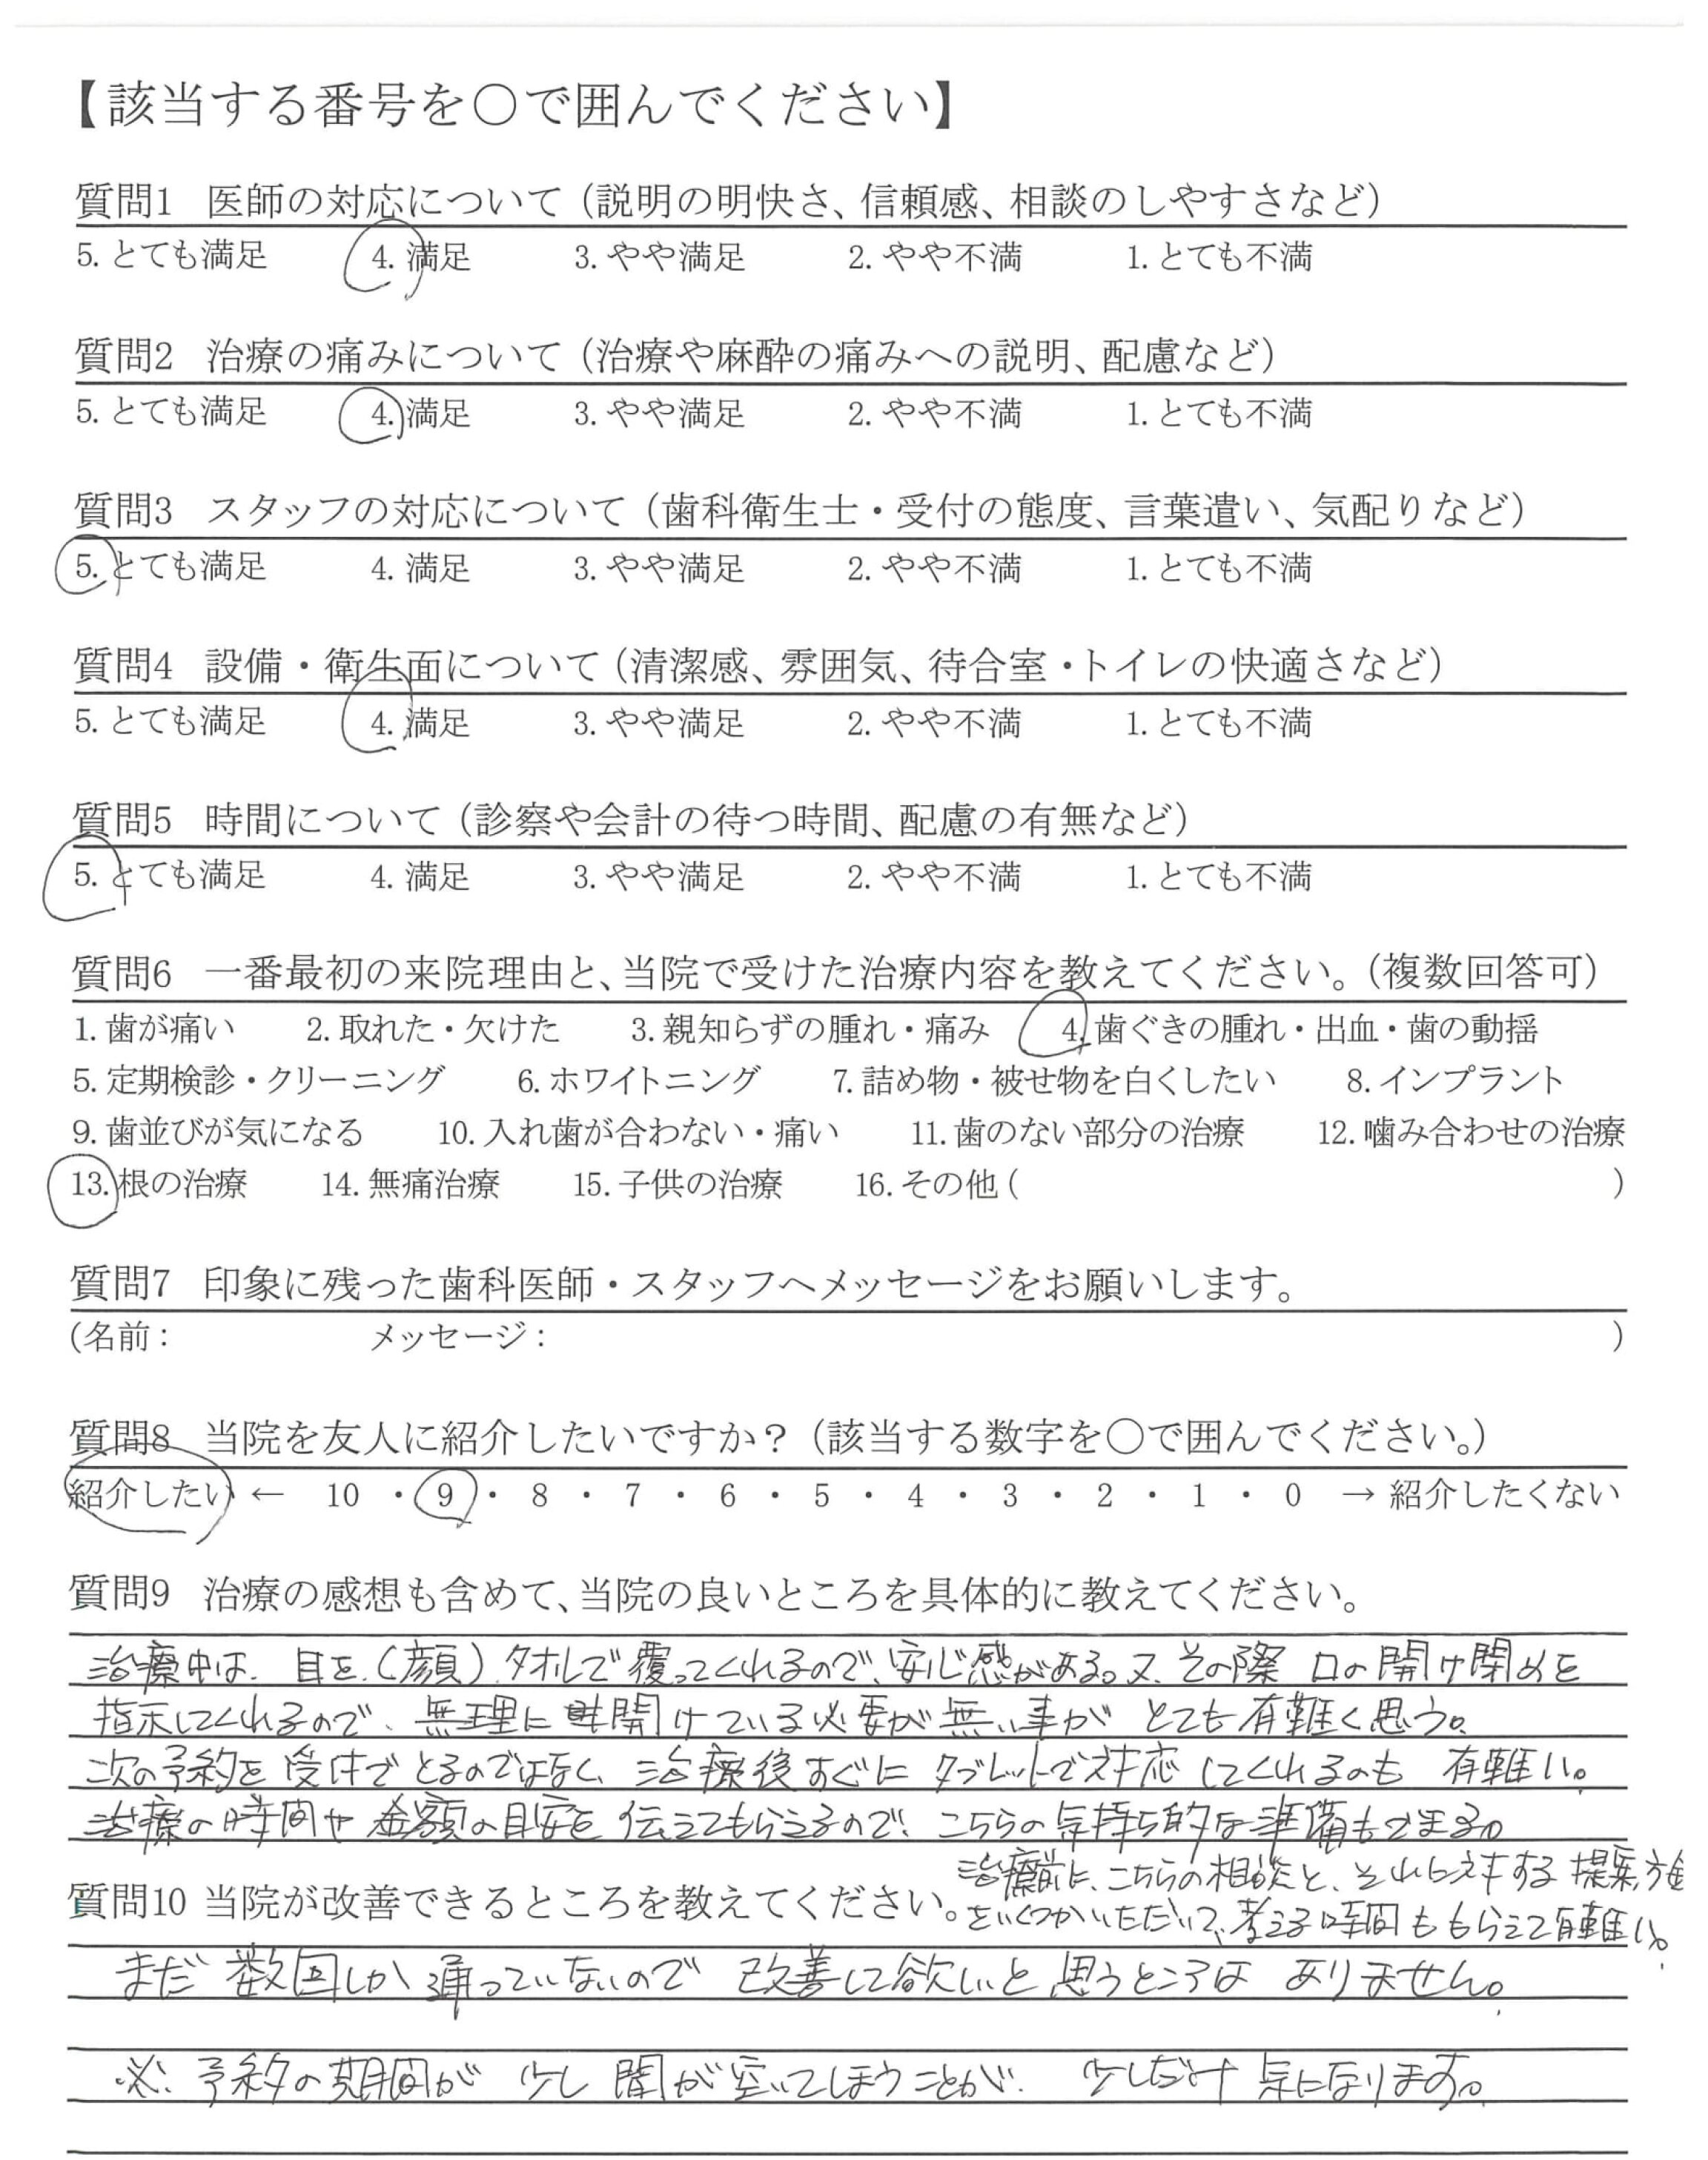 【該当する番号を○で囲んでください】
質問1 医師の対応について（説明の明快さ、信頼感、相談のしやすさなど）
5. とても満足 4. 満足 3. やや満足 2. やや不満 1. とても不満
質問2 治療の痛みについて（治療や麻酔の痛みへの説明、配慮など）
5. とても満足 4. 満足 3. やや満足 2. やや不満 1. とても不満
質問3 スタッフの対応について（歯科衛生士・受付の態度、言葉遣い、気配りなど）
5. とても満足 4. 満足 3. やや満足 2. やや不満 1. とても不満
質問4 設備・衛生面について（清潔感、雰囲気、待合室・トイレの快適さなど）
5. とても満足 4. 満足 3. やや満足 2. やや不満 1. とても不満
質問5 時間について（診察や会計の待つ時間、配慮の有無など）
5. とても満足 4. 満足 3. やや満足 2. やや不満 1. とても不満
質問6 一番最初の来院理由と、当院で受けた治療内容を教えてください。（複数回答可）
1. 歯が痛い 2. 取れた・欠けた 3. 親知らずの腫れ・痛み 4. 歯ぐきの腫れ・出血・歯の動揺
5. 定期検診・クリーニング 6. ホワイトニング 7. 詰め物・被せ物を白くしたい 8. インプラント
9. 歯並びが気になる 10. 入れ歯が合わない・痛い 11. 歯のない部分の治療 12. 噛み合わせの治療
13. 根の治療 14. 無痛治療 15. 子供の治療 16. その他（ ）
質問7 印象に残った歯科医師・スタッフへメッセージをお願いします。
（名前： メッセージ： ）
質問8 当院を友人に紹介したいですか？（該当する数字を○で囲んでください。）
紹介したい ← 10 ・ 9 ・ 8 ・ 7 ・ 6 ・ 5 ・ 4 ・ 3 ・ 2 ・ 1 ・ 0 → 紹介したくない
質問9 治療の感想も含めて、当院の良いところを具体的に教えてください。
治療中は、目を（顔）タオルで覆ってくれるので、安心感がある。又、その際 口の開け閉めを
指示してくれるので、無理に開けている必要が無い事が とても有難く思う。
次の予約を受付でとるのではなく、治療後すぐに タブレットで対応してくれるのも 有難い。
治療の時間や金額の目安を伝えてもらえるので、こちらの気持ち的な準備もできる。
治療前に、こちらの相談と、それに対する提案、方
をいくつかいただいて、考える時間ももらえて有難い。
質問10 当院が改善できるところを教えてください。
まだ数回しか通っていないので 改善して欲しいと思うところは ありません。
※ 予約の期間が 少し間が空いてしまうことが、少しだけ気になります。